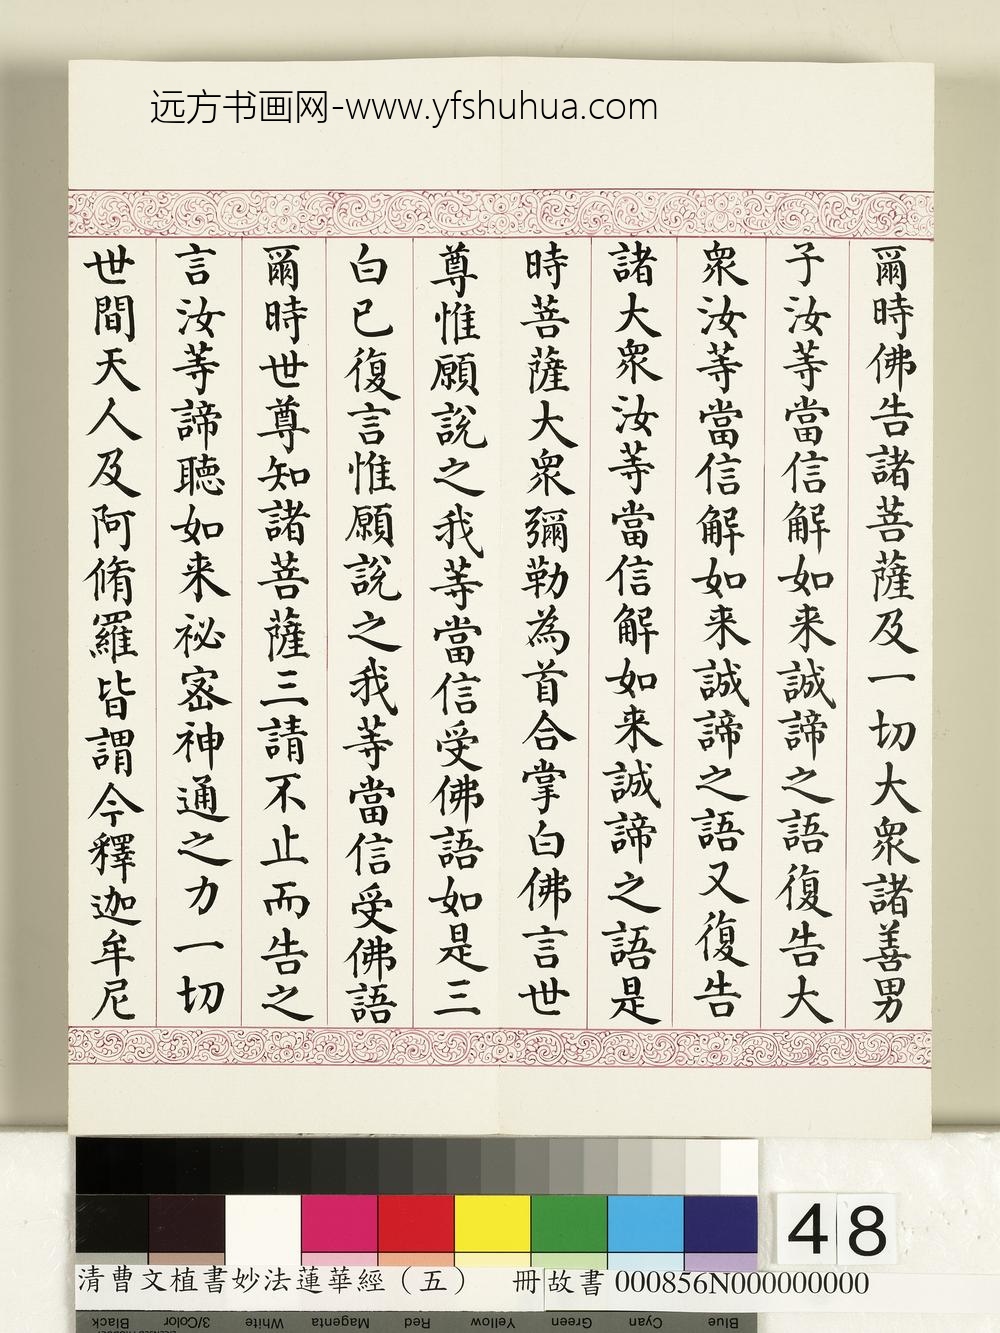 远方书画网-www.yfshuhua.com
爾時佛告諸菩薩及一切大衆諸善男
子汝等當信解如来誠諦之語復告大
衆汝等當信解如来誠諦之語又復告
諸大衆汝等當信解如来誠諦之語是
時菩薩大衆彌勒為首合掌白佛言世
尊惟願說之我等當信受佛語如是三
白已復言惟願說之我等當信受佛語
爾時世尊知諸菩薩三請不止而告之
言汝等諦聽如来祕密神通之力一切
世間天人及阿脩羅皆謂今釋迦牟尼
48
清曹文植書妙法蓮華經（五） 冊 故書 000856N000000000
Black 3/Color White Magenta Red Yellow Green Cyan Blue